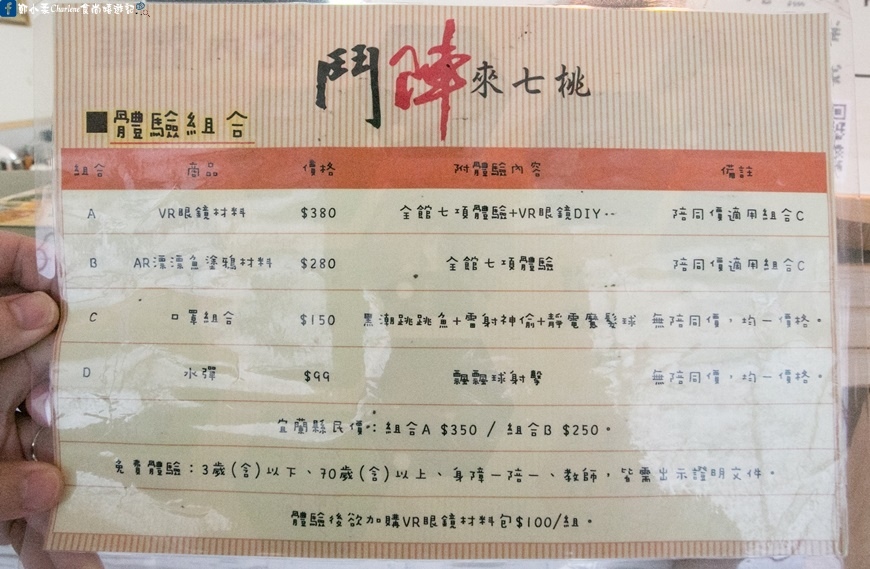 鄧小葉Charlene食尚樂遊記
鬥陣來七桃
■體驗組合
組合 商品 價格 附體驗內容 備註
A VR眼鏡材料 $380 全館七項體驗+VR眼鏡DIY-- 陪同價適用組合C
B AR漂漂魚塗鴉材料 $280 全館七項體驗 陪同價適用組合C
C 口罩組合 $150 黑潮跳跳魚+雷射神偷+靜電鬈髮球 無陪同價,均一價格。
D 水彈 $99 飄飄球射擊 無陪同價,均一價格。
宜蘭縣民價:組合A $350 / 組合B $250。
免費體驗:3歲(含)以下、70歲(含)以上、身障一陪一、教師,皆需出示證明文件。
體驗後欲加購VR眼鏡材料包$100/組。